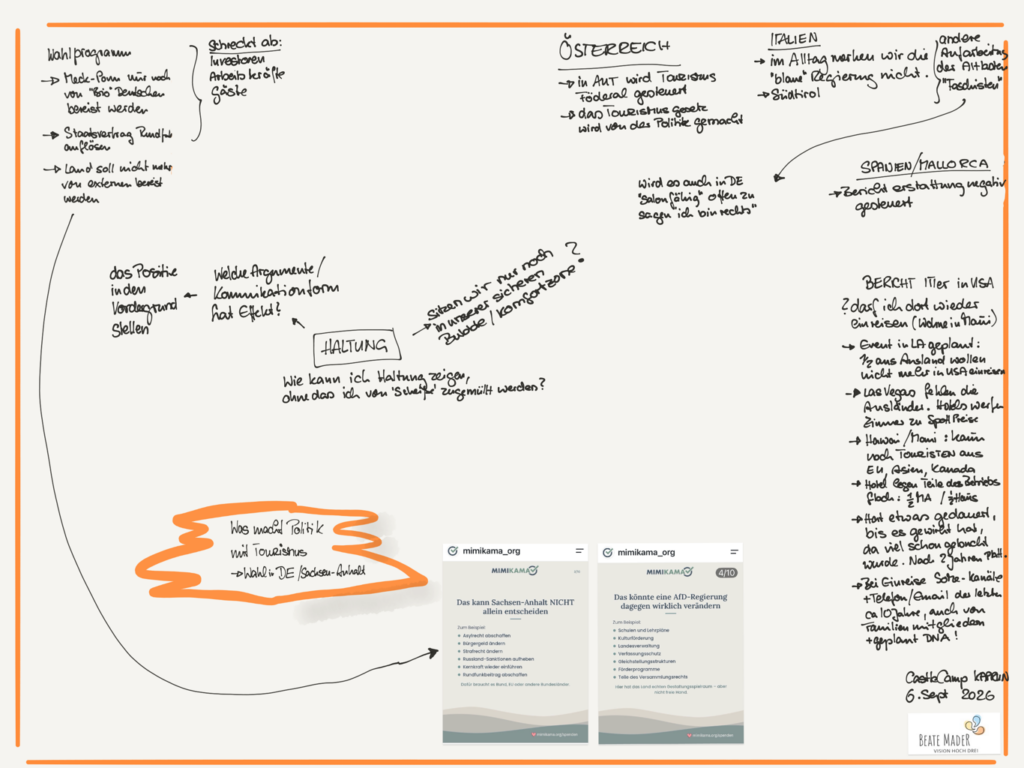 Wahlprogramm
→ Meck-Pom nur noch
von "Bio" Deutschen
bereist werden
→ Staatsvertrag Rundfunk
auflösen
→ Land soll nicht mehr
von externen bereist
werden
Schreckt ab:
Investoren
Arbeitskräfte
Gäste
ÖSTERREICH
→ in AUT wird Tourismus
Föderal gesteuert
→ das Tourismus gesetz
wird von der Politik gemacht
ITALIEN
→ im Alltag merken wir die
"blaue" Regierung nicht.
→ Südtirol
andere
Aufarbeitung
der Altlasten
"Faschisten"
SPANIEN/MALLORCA
→ Bericht erstattung negativ
gesteuert
Wird es auch in DE
"salonfähig" offen zu
sagen "ich bin rechts"
das Positive
in den
Vordergrund
stellen
Welche Argumente/
Kommunikationform
hat Effekt?
Sitzen wir nur noch
in unserer sicheren
Bubble/Komfortzone?
HALTUNG
Wie kann ich Haltung zeigen,
ohne das ich von "Scheiße" zugemüllt werden?
BERICHT ITler in USA
? darf ich dort wieder
einreisen (Wohne in Maui)
→ Event in LA geplant:
1/2 aus Ausland wollen
nicht mehr in USA einreisen
→ Las Vegas fehlen die
Ausländer. Hotels werfen
Zimmer zu Spott Preise
→ Hawai/Maui: kaum
noch TOURISTEN aus
EU, Asien, Kanada
→ Hotel legen Teile des Betriebs
flach: 1/2 MA / 1/2 Haus
→ Hat etwas gedauert,
bis es gewirkt hat,
da viel schon gebucht
wurde. Nach 2 Jahren Platt.
→ Bei Einreise Sozi-Kanäle
+ Telefon/Email der letzten
ca 10 Jahre, auch von
Familien mitgliedern
+ geplant DNA!
Was macht Politik
mit Tourismus
→ Wahl in DE/Sachsen-Anhalt
mimikama_org
MIMIKAMA
Das kann Sachsen-Anhalt NICHT
allein entscheiden
Zum Beispiel:
Asylrecht abschaffen
Bürgergeld ändern
Strafrecht ändern
Russland-Sanktionen aufheben
Kernkraft wieder einführen
Rundfunkbeitrag abschaffen
Dafür braucht es Bund, EU oder andere Bundesländer.
mimikama.org/spenden
mimikama_org
MIMIKAMA
4/10
Das könnte eine AfD-Regierung
dagegen wirklich verändern
Zum Beispiel:
Schulen und Lehrpläne
Kulturförderung
Landesverwaltung
Verfassungsschutz
Gleichstellungsstrukturen
Förderprogramme
Teile des Versammlungsrechts
Hier hat das Land echten Gestaltungsspielraum – aber
nicht freie Hand.
mimikama.org/spenden
CastleCamp KAPRUN
6. Sept 2026
BEATE MADER
VISION HOCH DREI